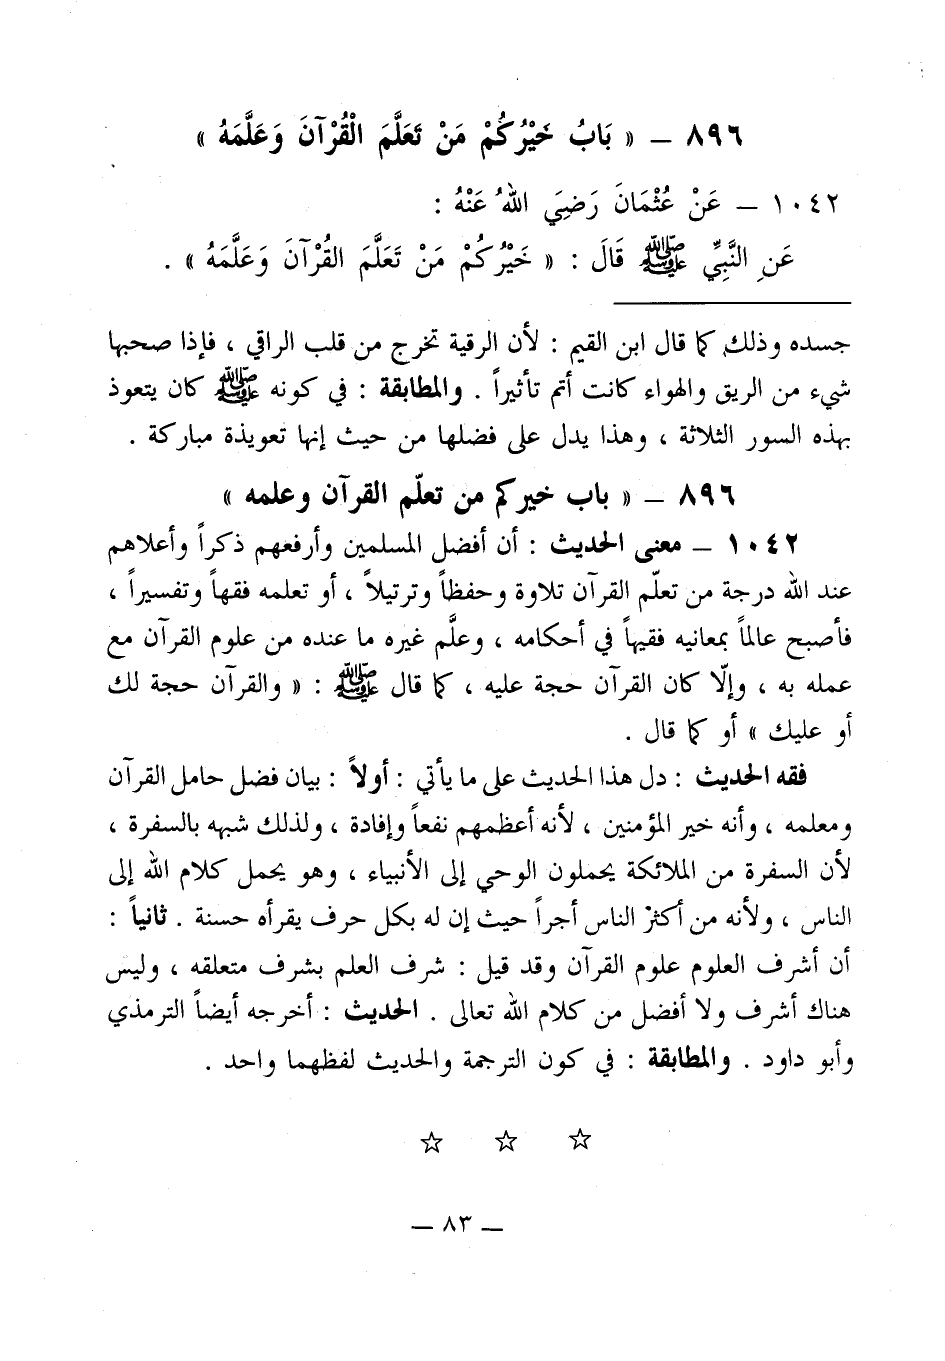 ٨٩٦ – « بَابُ خَيْرُكُمْ مَنْ تَعَلَّمَ الْقُرْآنَ وَعَلَّمَهُ »
١٠٤٢ – عَنْ عُثْمَانَ رَضِيَ اللهُ عَنْهُ :
عَنِ النَّبِيِّ ﷺ قَالَ : « خَيْرُكُمْ مَنْ تَعَلَّمَ القُرْآنَ وَعَلَّمَهُ » .
جسده وذلك كما قال ابن القيم : لأن الرقية تخرج من قلب الراقي ، فإذا صحبها
شيء من الريق والهواء كانت أتم تأثيراً . والمطابقة : في كونه ﷺ كان يتعوذ
بهذه السور الثلاثة ، وهذا يدل على فضلها من حيث إنها تعويذة مباركة .
٨٩٦ – « باب خيركم من تعلّم القرآن وعلمه »
١٠٤٢ – معنى الحديث : أن أفضل المسلمين وأرفعهم ذكراً وأعلاهم
عند الله درجة من تعلّم القرآن تلاوة وحفظاً وترتيلاً ، أو تعلمه فقهاً وتفسيراً ،
فأصبح عالماً بمعانيه فقيهاً في أحكامه ، وعلَّم غيره ما عنده من علوم القرآن مع
عمله به ، وإلّا كان القرآن حجة عليه ، كما قال ﷺ : « والقرآن حجة لك
أو عليك » أو كما قال .
فقه الحديث : دل هذا الحديث على ما يأتي : أولاً : بيان فضل حامل القرآن
ومعلمه ، وأنه خير المؤمنين ، لأنه أعظمهم نفعاً وإفادة ، ولذلك شبه بالسفرة ،
لأن السفرة من الملائكة يحملون الوحي إلى الأنبياء ، وهو يحمل كلام الله إلى
الناس ، ولأنه من أكثر الناس أجراً حيث إن له بكل حرف يقرأه حسنة . ثانياً :
أن أشرف العلوم علوم القرآن وقد قيل : شرف العلم بشرف متعلقه ، وليس
هناك أشرف ولا أفضل من كلام الله تعالى . الحديث : أخرجه أيضاً الترمذي
وأبو داود . والمطابقة : في كون الترجمة والحديث لفظهما واحد .
☆ ☆ ☆
– ٨٣ –